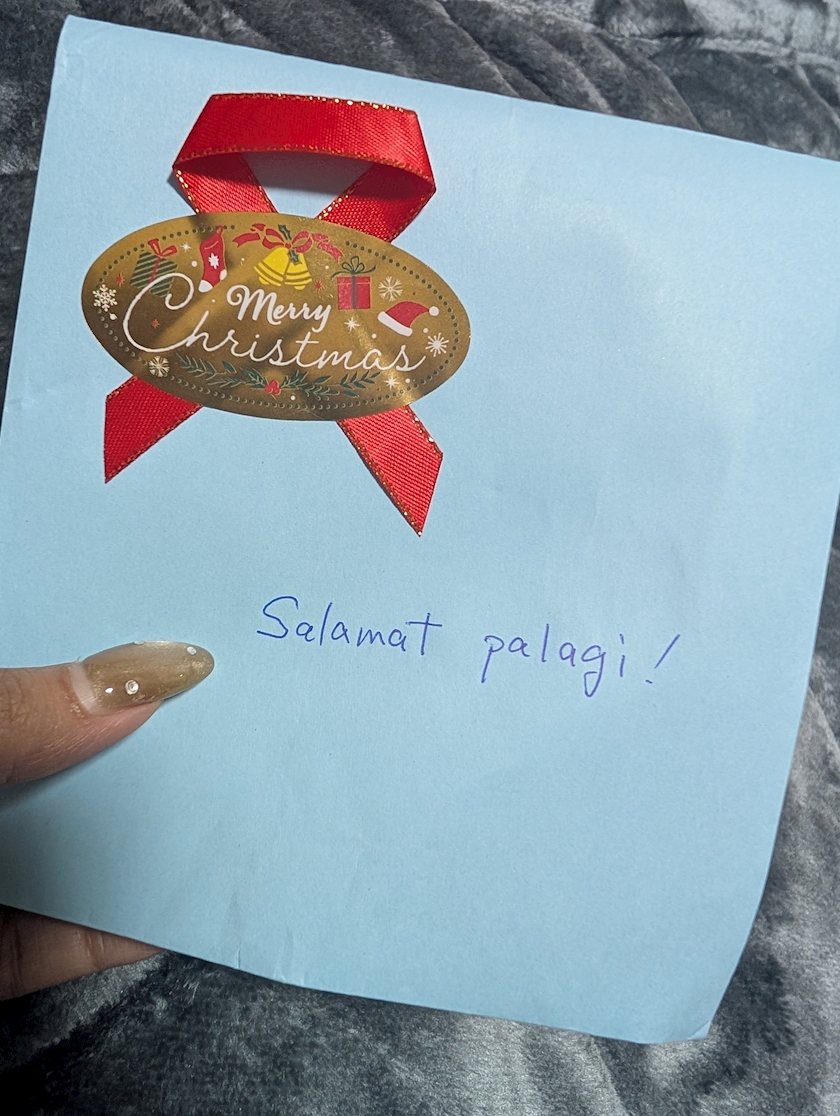 Merry
Christmas
Salamat palagi!